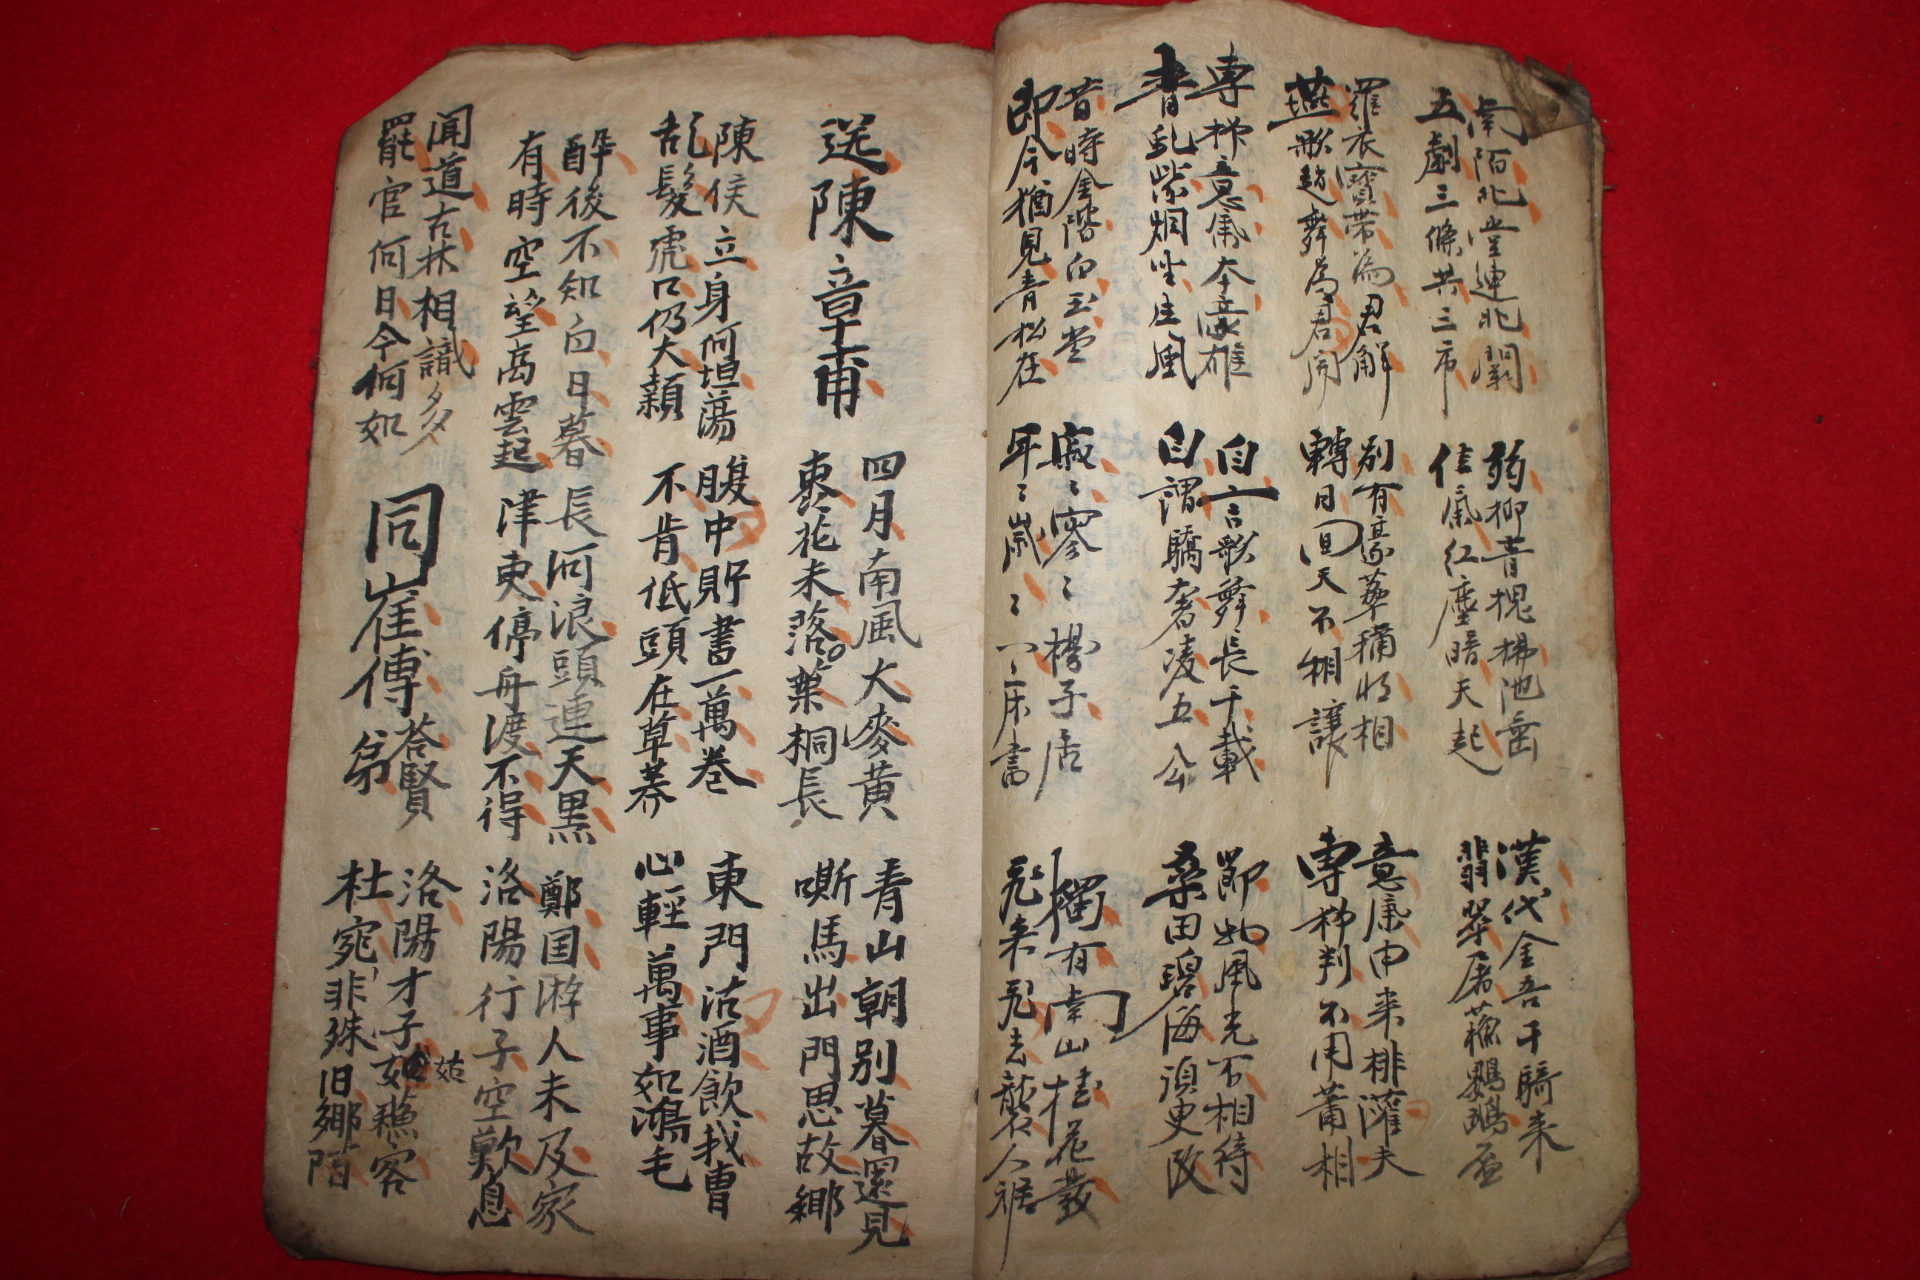 南陌北堂連北闕
五劇三條共三市
弱柳青槐拂池垂
佳氣紅塵暗天起
漢代金吾千騎來
翡翠屠蘓鸚鵡盃
羅衣寶帶為君解
燕歌趙舞為君開
別有豪華稱將相
轉日回天不相讓
意氣由来排灌夫
專權判不用蕭相
專權意氣本豪雄
青虬紫烟坐生風
自言歌舞長千載
自謂驕奢凌五公
節物風光不相待
桑田碧海須更改
昔時金階白玉堂
即今猶見青松在
寂〻寥〻楊子居
年〻歲〻一床書
獨有南山桂花發
飛来飛去襲人裾
送陳章甫
四月南風大麥黃
棗花未落葉桐長
青山朝別暮還見
嘶馬出門思故鄉
陳侯立身何坦蕩
乱髮虎口仍大顙
腹中貯書一萬卷
不肯低頭在草莽
東門沽酒飲我曹
心輕萬事如鴻毛
醉後不知白日暮
有時空望高雲起
長河浪頭連天黑
津吏停舟渡不得
鄭国游人未及家
洛陽行子空歎息
聞道古林相識多
罷官何日今何如
同崔傅答賢弟
洛陽才子姑蘓客
杜宛非殊旧鄉陌